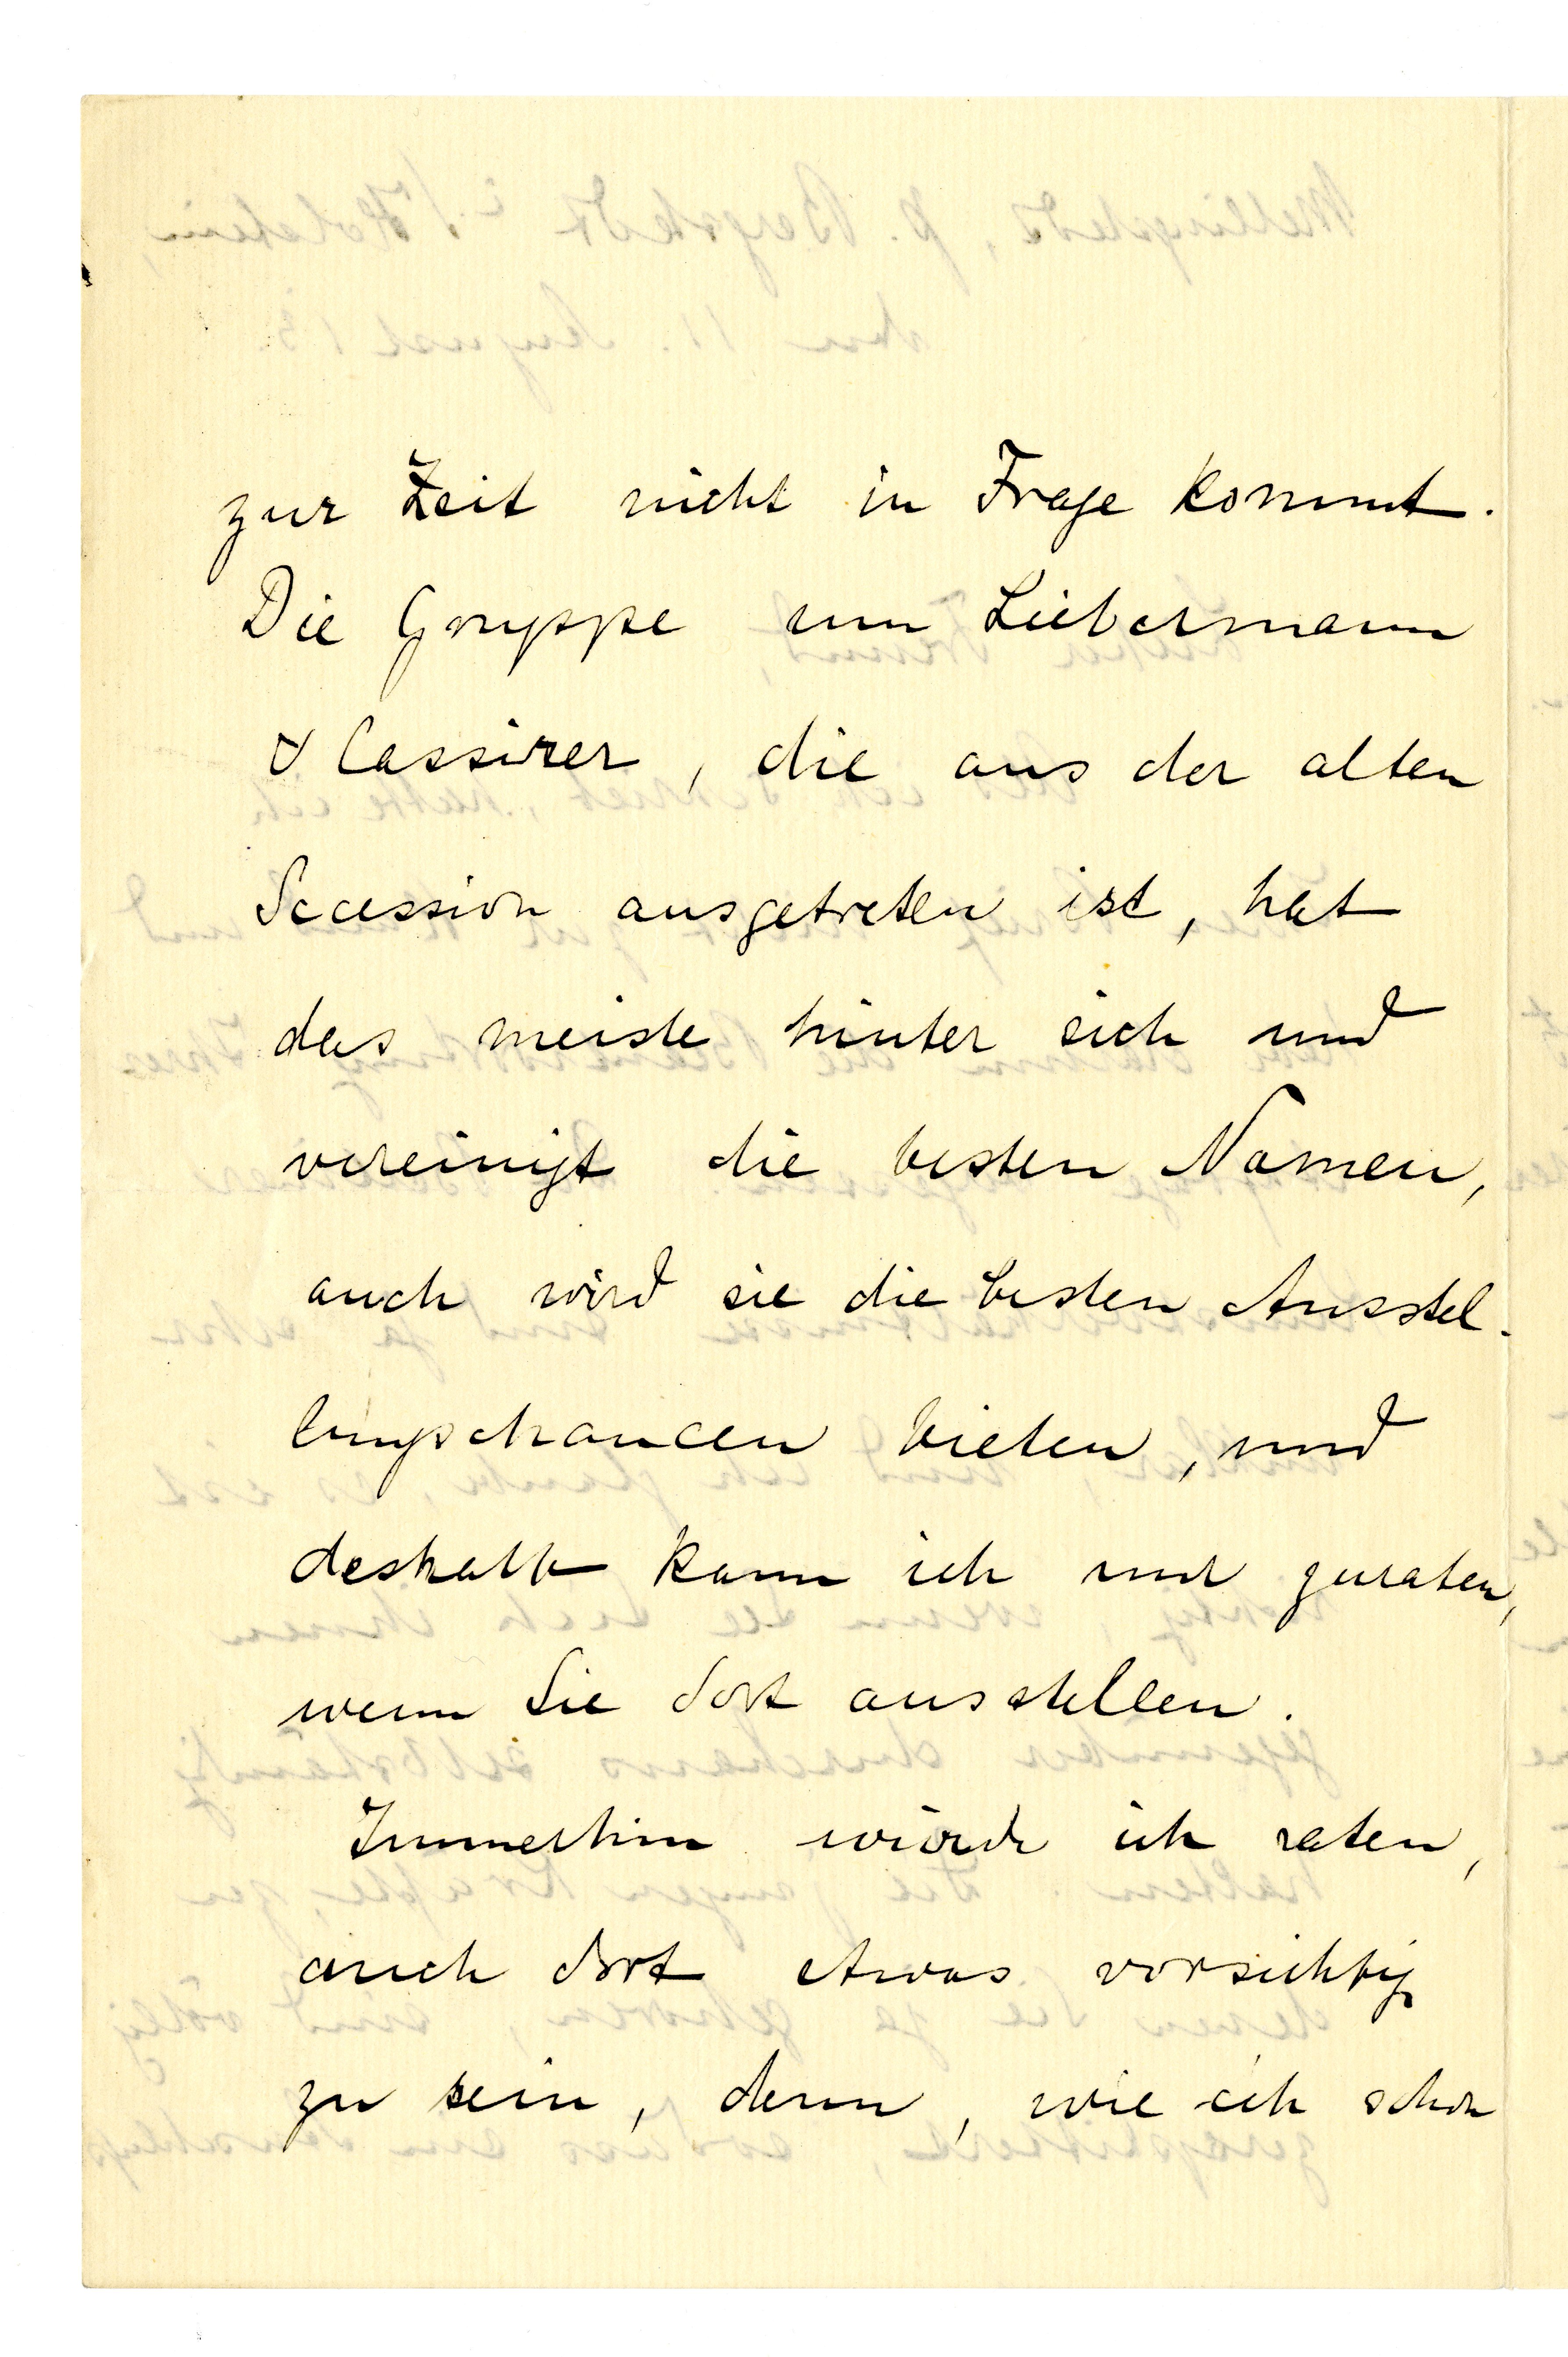 zur Zeit nicht in Frage kommt.
Die Gruppe um Liebermann
& Cassirer, die aus der alten
Secession ausgetreten ist, hat
das meiste hinter sich und
vereinigt die besten Namen,
auch wird sie die besten Ausstel-
lungschancen bieten, und
deshalb kann ich nur zuraten,
wenn Sie dort ausstellen.
Immerhin würde ich raten,
auch dort etwas vorsichtig
zu sein, denn, wie ich schon